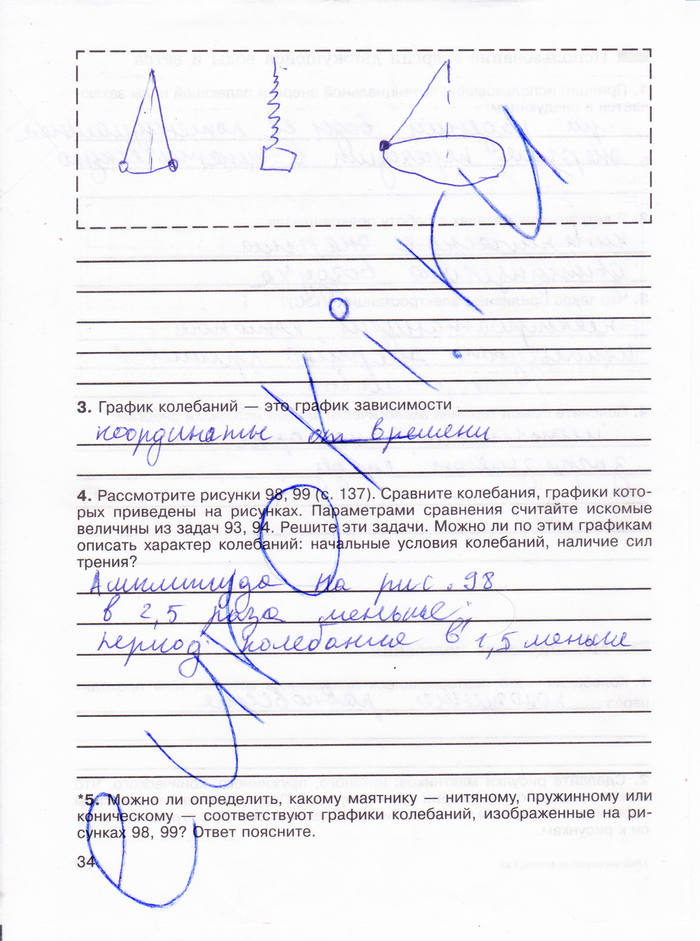 3. График колебаний — это график зависимости
координаты от времени
4. Рассмотрите рисунки 98, 99 (с. 137). Сравните колебания, графики кото-
рых приведены на рисунках. Параметрами сравнения считайте искомые
величины из задач 93, 94. Решите эти задачи. Можно ли по этим графикам
описать характер колебаний: начальные условия колебаний, наличие сил
трения?
Амплитуда на рис. 98
в 2,5 раза меньше;
период колебания в 1,5 меньше
*5. Можно ли определить, какому маятнику — нитяному, пружинному или
коническому — соответствуют графики колебаний, изображенные на ри-
сунках 98, 99? Ответ поясните.
34